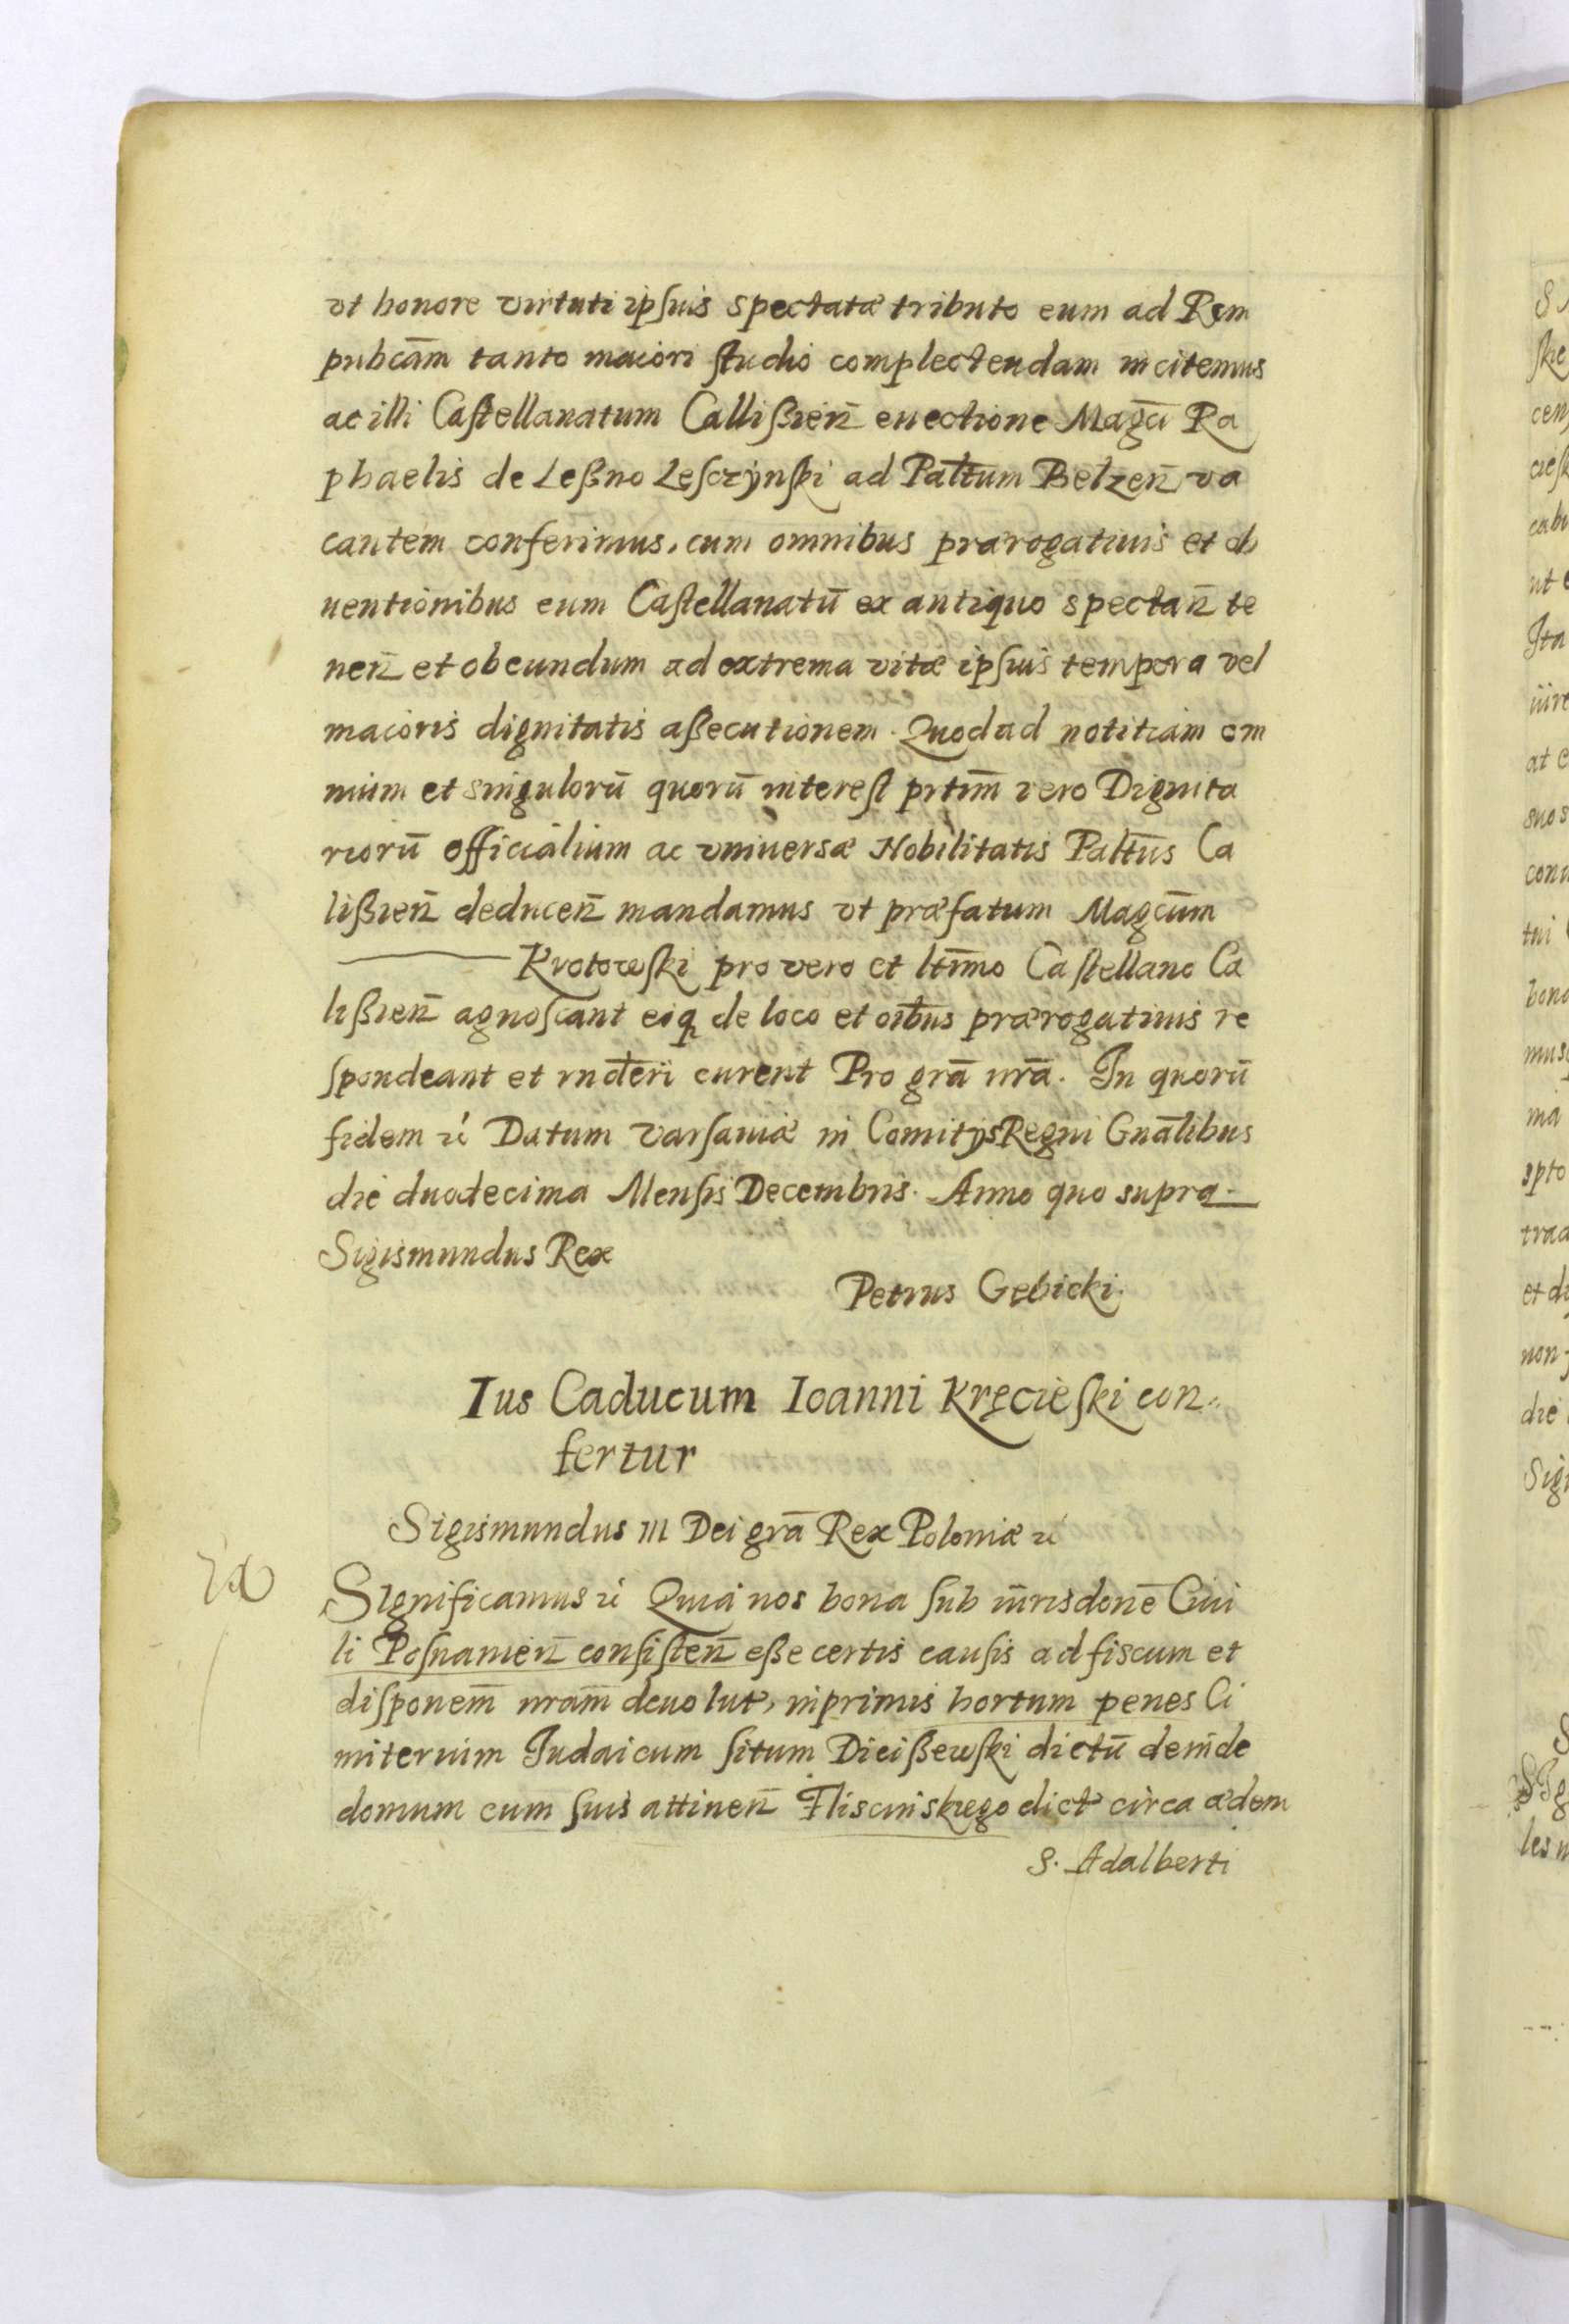 vt honore virtuti ipſuis spectatæ tributo eum ad Rem
pubcām tanto maiori ſtudio complectendam incitemus
ac illi Caſtellanatum Callißień euectione Magći Ra
phaelis de Leßno Leſczÿnſki ad Palt̄um Belzeń va
cantem conferimus, cum omnibus prærogatiuis et ob
uentionibus eum Caſtellanatū ex antiquo spectań te
neń et obeundum ad extrema vitæ ipſuis tempora vel
maioris dignitatis aßecutionem. Quod ad notitiam om
nium et singulorū quorū intereſt prtīm vero Dignita
riorū officialium ac vniuersæ Nobilitatis Palt̄us Ca
lißień deduceń mandamus vt præfatum Magcūm
Krotowſki pro vero et ltīmo Caſtellano Ca
lißień agnoſcant eiq de loco et oībus prærogatiuis re
ſpondeant et rnd̄eri curent Pro grā nrā. In quorū
fidem ić Datum Varſauiæ in Comitÿs Regni Gnālibus
die duodecima Menſis Decembris. Anno quo supra.
Sigismundus Rex
Petrus Gębicki.
Ius Caducum Ioanni Kręcieſki con
fertur
Sigismundus III Dei grā Rex Poloniæ ić
SIgnificamus ić Quia nos bona ſub iūrisdonē Ciui
li Poſnanień conſiſteń eße certis cauſis ad fiscum et
diſponem̄ nram̄ deuolut, inprimis hortum penes Ci
miterium Judaicum ſitum Dieißewſki dictū deinde
domum cum ſuis attineń Fliscinskiego dict circa ædem
S. Adalberti